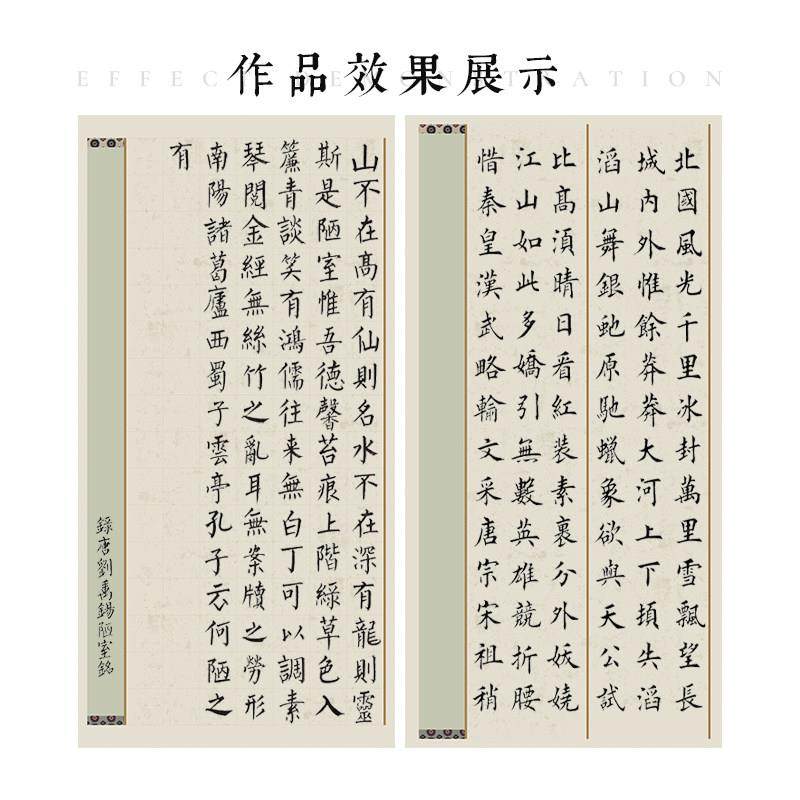 作品效果展示
山不在髙有仙則名水不在深有龍則靈
斯是陋室惟吾德馨苔痕上階綠草色入
簾青談笑有鴻儒往来無白丁可以調素
琴閱金經無絲竹之亂耳無案牘之勞形
南陽諸葛廬西蜀子雲亭孔子云何陋之
有
錄唐劉禹錫陋室銘
北國風光千里冰封萬里雪飄望長
城内外惟餘莽莽大河上下頓失滔
滔山舞銀虵原馳蠟象欲與天公試
比髙湏晴日看紅装素裹分外妖嬈
江山如此多嬌引無數英雄競折腰
惜秦皇漢武略輸文采唐宗宋祖稍